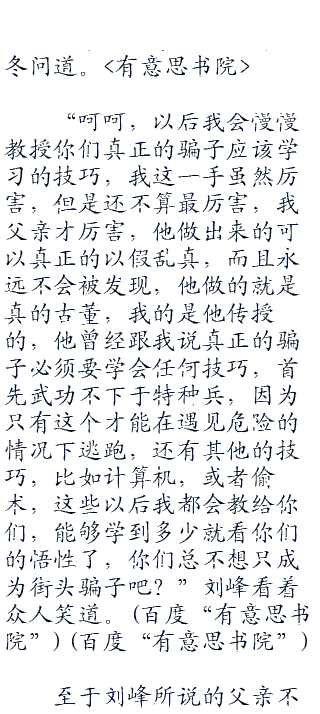 冬问道。<有意思书院>
“呵呵，以后我会慢慢
教授你们真正的骗子应该学
习的技巧，我这一手虽然厉
害，但是还不算最厉害，我
父亲才厉害，他做出来的可
以真正的以假乱真，而且永
远不会被发现，他做的就是
真的古董，我的是他传授
的，他曾经跟我说真正的骗
子必须要学会任何技巧，首
先武功不下于特种兵，因为
只有这个才能在遇见危险的
情况下逃跑，还有其他的技
巧，比如计算机，或者偷
术，这些以后我都会教给你
们，能够学到多少就看你们
的悟性了，你们总不想只成
为街头骗子吧？”刘峰看着
众人笑道。(百度“有意思书
院”)(百度“有意思书院”)
至于刘峰所说的父亲不